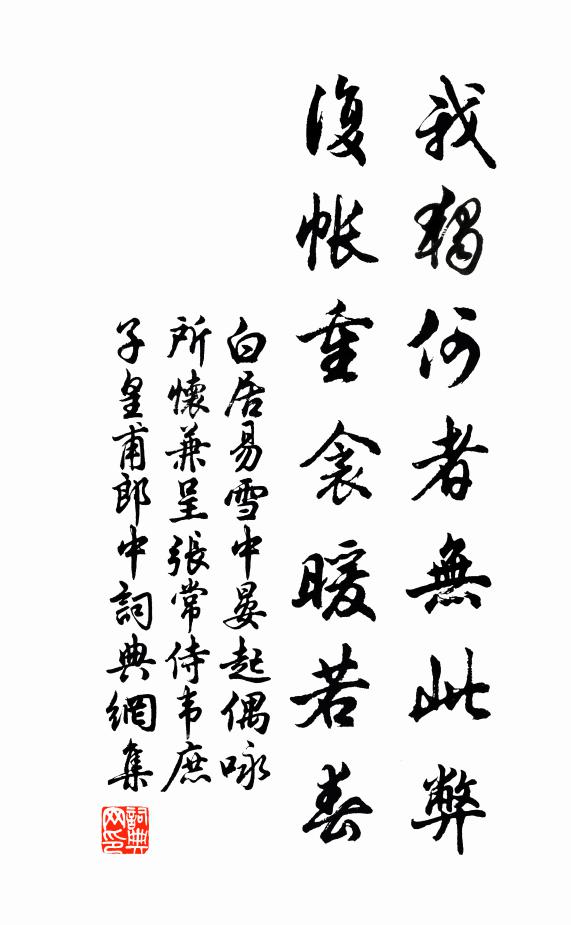 我獨何者無此弊
復帳重衾暖若春
白居易雪中晏起偶咏
所懷兼呈張常侍韦庶
子皇甫郎中詞典網集
詞典网印